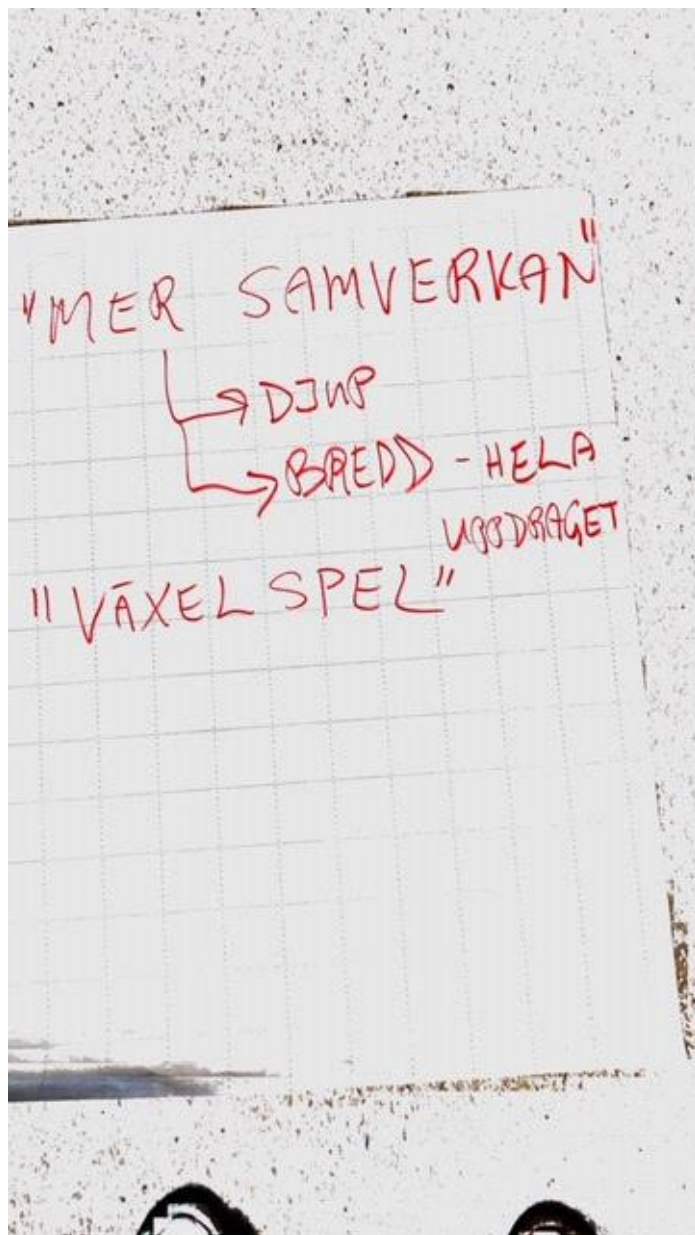 "MER SAMVERKAN"
→ DJUP
→ BREDD - HELA
UPPDRAGET
"VÄXELSPEL"